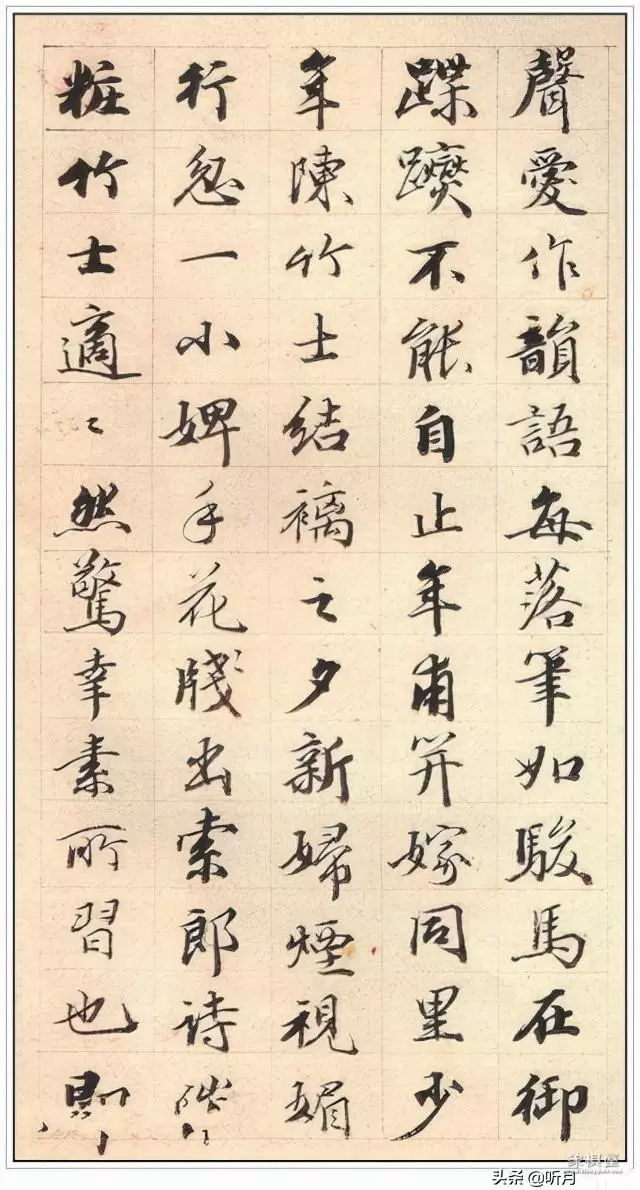 聲愛作韻語每落筆如駿馬在御
蹀躞不能自止年甫笄嫁同里少
年陳竹士結褵之夕新婦煙視媚
行忽一小婢手花牋出索郎詩催
粧竹士適〻然驚幸素所習也則
象棋堡
头条 @听月